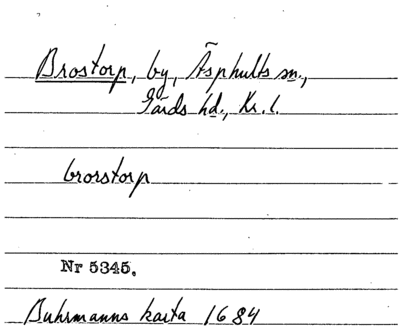 Brostorp, by, Äsphults sn.,
Gärds hd., Kr. l.
brorstorp
Nr 5345.
Buhrmanns karta 1684